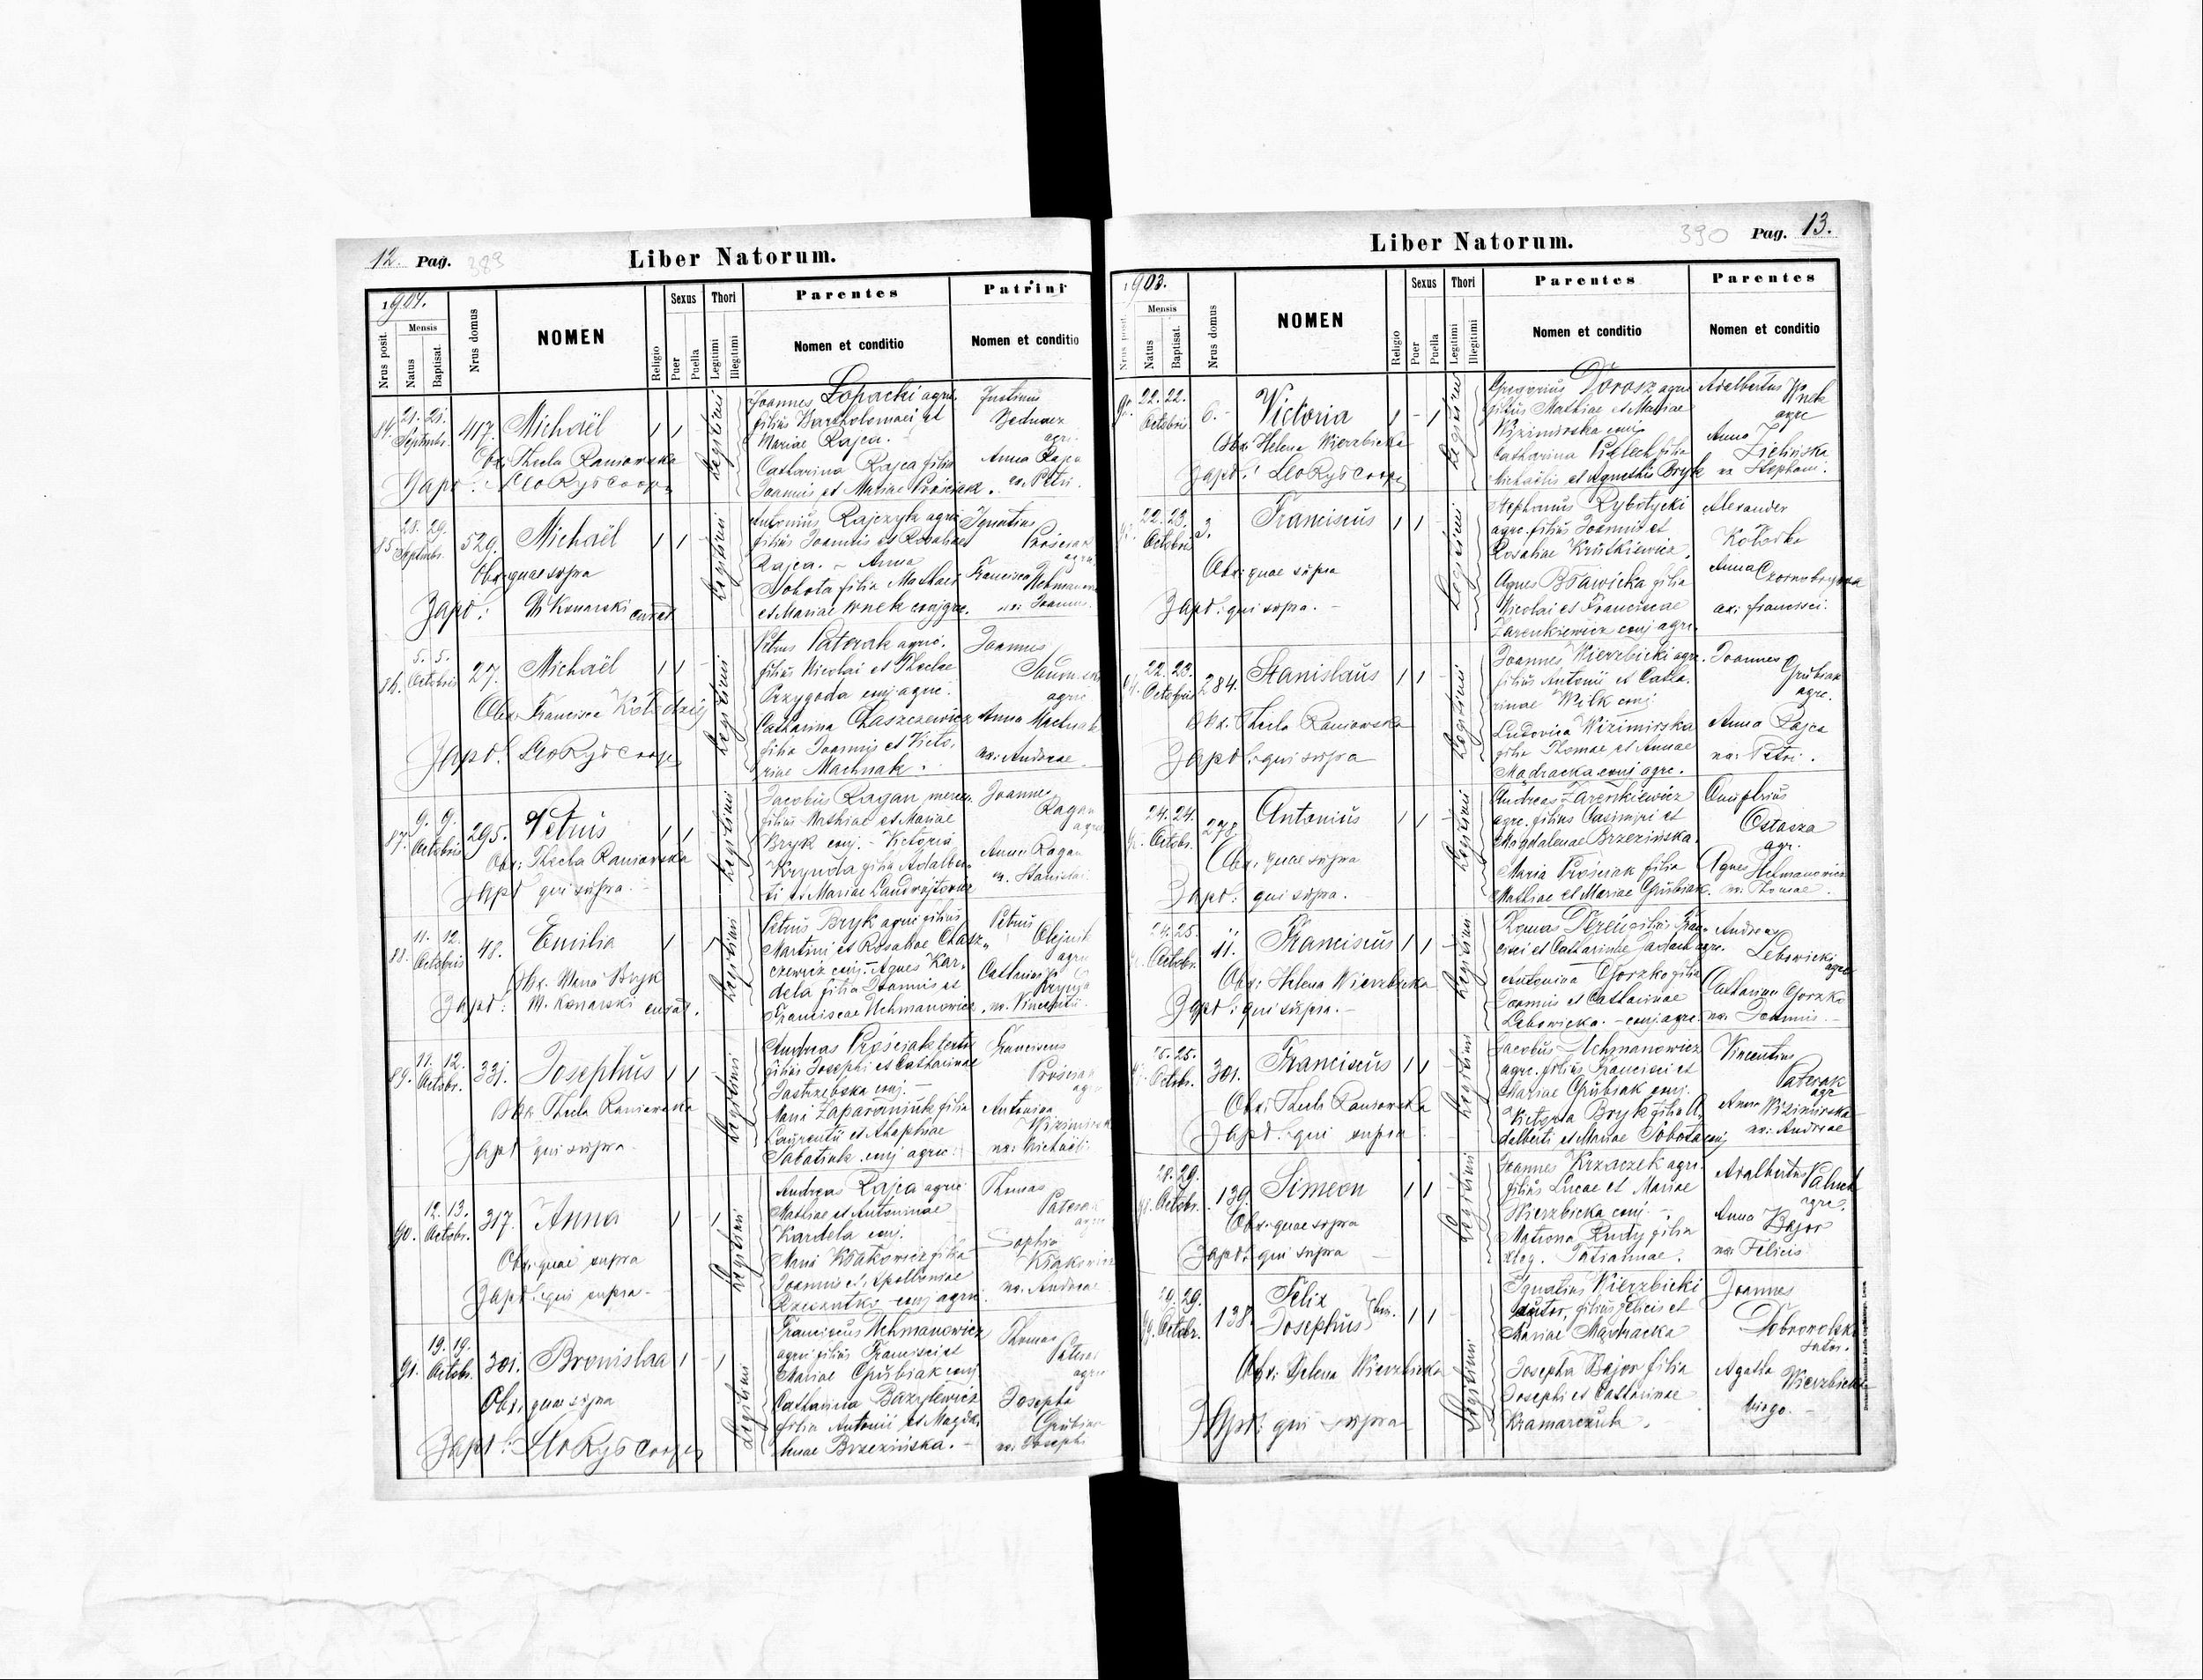 12. Pag. 389
Liber Natorum.
1904.
Nrus posit.
Mensis
Natus
Baptisat.
Nrus domus
NOMEN
Religio
Sexus
Puer
Puella
Thori
Legitimi
Illegitimi
Parentes
Nomen et conditio
Patrini
Nomen et conditio
84. 21. 21. Septembr. 417. Michaël
Obx: Thecla Raniowska
Zapt: Leo Ryś Coop
Legitimi
Joannes Łopacki agric.
filius Bartholomaei et
Mariae Rajca.
Catharina Rajca filia
Joannis et Mariae Prościak.
Anna Rajca
ux. Petri.
85. 28. 29. Septembr. 529. Michaël
Obx: quae supra
Zapt: M Konarski curat
Legitimi
Antonius Rajczyk agric
filius Joannis et Rosaliae
Rajca. - Anna
Sobota filia Mathaei
et Mariae Wnek conj agr.
Ignatius
Prościak
Francisca Uchmanowicz
ux: Joannis.
86. 5. 5. Octobris 27. Michaël
Obx: Francisca
Zapt: Leo Ryś Coop
Legitimi
Petrus Paterak agric.
filius Nicolai et Theclae
Przygoda conj agric.
Catharina Chaszczewicz
filia Joannis et Victo,
riae Machnak.
Joannes
agric
Anna Machnak
ux: Andreae
87. 9. 9. Octobris 295. Petrus
Obx: Thecla Raniowska
Zapt qui supra.
Legitimi
Jacobus Ragan merc.
filius Mathiae et Mariae
Bryk conj. - Victoria
Krynda filia Adalber,
ti et Mariae Landwojtowicz
Joannes
Ragan
Anna Ragan
ux. Stanislai
88. 11. 12. Octobris 48. Emilia
Obx. Maria Bryk
Zapt: M. Konarski curat.
Legitimi
Petrus Bryk agric filius
Martini et Rosaliae Chasz,
czewicz conj. - Agnes Kar,
dela filia Joannis et
Franciscae Uchmanowicz.
Petrus
Olejnik
agric
Catharina
ux. Vincentii.
89. 11. 12. Octobr. 331. Josephus
Obx. Thecla Raniowska
Zapt qui supra.
Legitimi
Andreas Prościak
filius Josephi et Catharinae
Jastrzebska conj. -
Maria Zaparaniuk filia
Laurentii et Ahaphiae
Sabatiuk conj agric:
Franciscus
Prościak
Antonina
Wizimirska
ux: Michaëli.
90. 12. 13. Octobr. 317. Anna
Obx: quae supra
Zapt: qui supra -
Legitimi
Andreas Rajca agric
Mathiae et Antoninae
Kardela conj.
Maria Krakowicz filia
Joannis et Apolloniae
Rzeszutko conj agric.
Thomas
Paterak
Sophia
Krakowicz
ux. Andreae
91. 19. 19. Octobr. 301. Bronislaa
Obx. quae supra
Zapt: Leo Ryś Cooper
Legitimi
Franciscus Uchmanowicz
agric filius Francisci et
Mariae Grubiak conj
Catharina Bazylewicz
filia Antonii et Magda,
lenae Brzezińska. -
Thomas
Paterak
agric
Josepha
Grubiak
ux: Josephi
390 Pag. 13.
Liber Natorum.
1903.
Nrus posit.
Mensis
Natus
Baptisat.
Nrus domus
NOMEN
Religio
Sexus
Puer
Puella
Thori
Legitimi
Illegitimi
Parentes
Nomen et conditio
Parentes
Nomen et conditio
22. 22. Octobris 6. - Victoria
Obx: Helena Wierzbicka
Zapt: Leo Ryś Coop
Legitimi
Gregorius Dorosz agric
filius Mathiae et Mariae
Wizimirska conj
Catharina Pielech filia
Michaëlis et Agnethis Bryk
Adalbertus Wnek
agric
Anna
Zielińska
ux Stephani.
22. 23. Octobris 3. Franciscus
Obx: quae supra
Zapt: qui supra. -
Legitimi
Stephanus Rybotycki
agric. filius Joannis et
Rosaliae Krutkiewicz.
Agnes Bławicka filia
Nicolai et Franciscae
Zarenkiewicz conj agric.
Alexander
Anna Czornobrywa
ux: Francisci.
22. 23. Octobris 284. Stanislaus
Obx. Thecla Raniowska
Zapt: qui supra
Legitimi
Joannes Wierzbicki agr.
filius Antonii et Catha,
rinae Wilk conj
Ludovica Wizimirska
filia Thomae et Annae
Mądracka conj agrc.
Joannes
Grubiak
agrc.
Anna Rajca
ux: Petri.
24. 24. Octobr. 278 Antonius
Obx. quae supra
Zapt: qui supra.
Legitimi
Andreas Zarenkiewicz
agrc. filius Casimiri et
Magdalenae Brzezińska.
Maria Prościak filia
Mathiae et Mariae Grubiak.
Onuphrius
Ostasza
agr.
Agnes Uchmanowicz
ux. Thomae.
24. 25. Octobr. 11. Franciscus
Obx: Helena Wierzbicka
Zapt: qui supra. -
Legitimi
Roma Dereń filius Fran,
cisci et Catharinae
Antonina Gorzko filia
Joannis et Catharinae
Lebowicka. - conj agrc.
Andreas
Lebowicki
agrc
Catharina Gorzko
ux. Joannis. -
25. 25. Octobr. 301. Franciscus
Obx: Thecla Raniowska
Zapt. qui supra
Legitimi
Jacobus Uchmanowicz
agrc. filius Francisci et
Mariae Grubiak conj.
Victoria Bryk filia A,
dalberti et Mariae Sobota conj
Vincentius
Paterak
agrc
Anna Wizimirska
ux: Andreae
28. 29. Octobr. 139. Simeon
Obx. quae supra
Zapt: qui supra
Legitimi
Joannes Krzaczek agric.
filius Lucae et Mariae
Wierzbicka conj
Matrona Rudy filia
Tatiannae.
Adalbertus
agrc.
Anna Bajor
ux: Felicis
29. 29. Octobr. 138. Felix
Josephus
Obx: Helena Wierzbicka
Zapt: qui supra
Legitimi
Ignatius Wierzbicki
sutor, filius Felicis et
Mariae Mądracka
Josepha Bajor filia
Josephi et Catharinae
Kramarczuk.
Joannes
Dobrowolski
sutor.
Agatha Wierzbicka
virgo. -